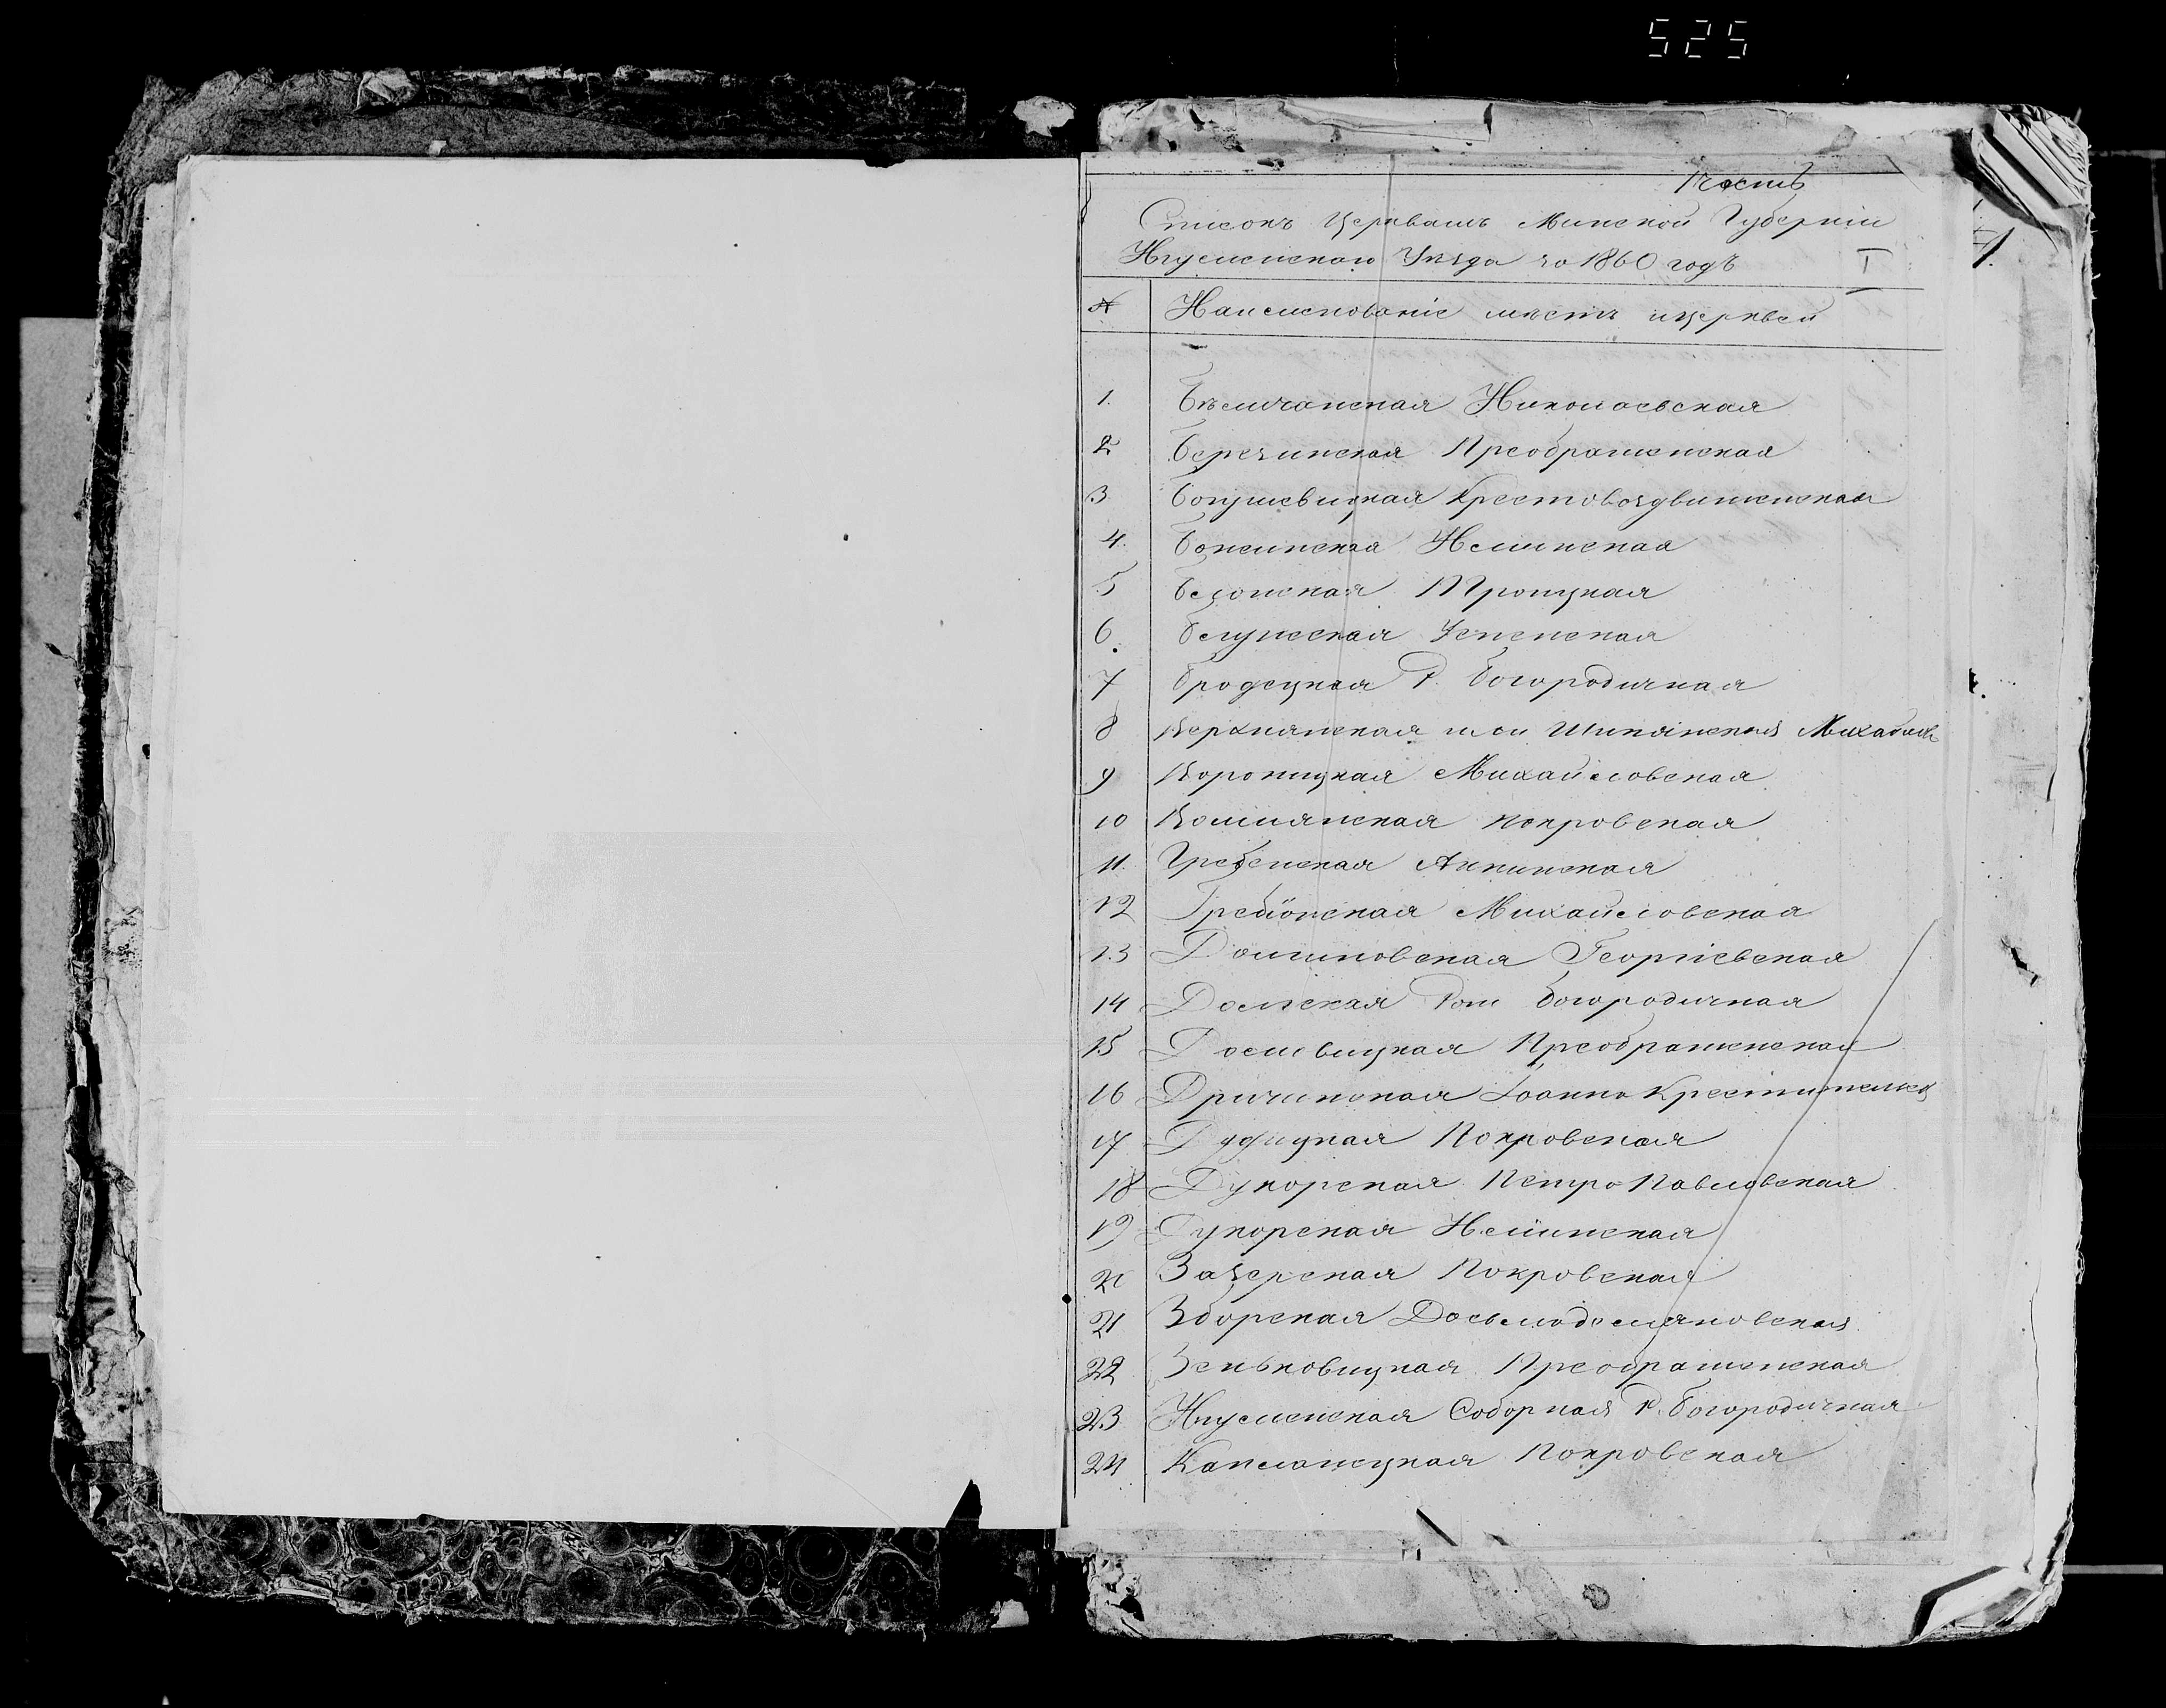 525
1 часть
Списокъ Церквамъ Минской Губерніи
Игуменскаго Уѣзда за 1860 годъ I
1.
№ Наименованіе мѣстъ и церквей
1. Бѣличанская Николаевская
2 Березинская Преображенская
3 Богушевицкая Крестовоздвиженская
4. Божинская Ильинская
5 Троицкая
6. Успенская
7 Бродецкая Р. Богородичная
8 Верхмянская или Шипянская Михайлов
9 Воропицкая Михайловская
10 Волмянская Покровская
11. Гребенская Аннинская
12 Гребіонская Михайловская
13 Георгіевская
14 Рож Богородичная
15 Преображенская
16 Дричинская Іоанно Крестительск
17 Дудицкая Покровская
18 Дукорская Петро Павловская
19 Дукорская Ильинская
20 Заѣерская Покровская
21 Зборская
22 Зеньковицкая Преображенская
23 Игуменская Соборная Р. Богородичная
24 Капланецкая Покровская